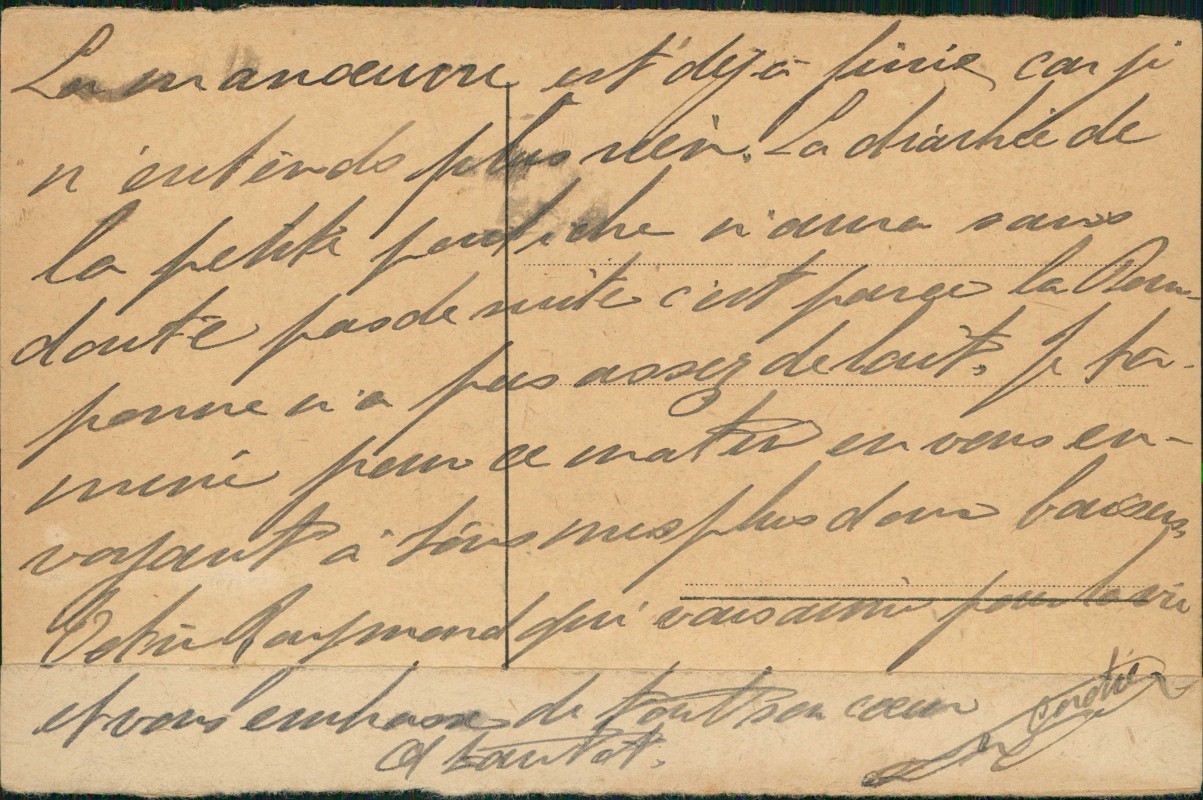 La manœuvre est déjà finie, car je
n'entends plus rien. La diarhée de
la petite n'aura sans
doute pas de suite c'est parce la Pom-
ponne n'a pas assez de lait. Je ter-
mine pour ce matin en vous en-
voyant à tous mes plus doux baisers,
Votre Raymond qui vous aime pour la vie
et vous embrasse de tout son cœur
A tantôt.